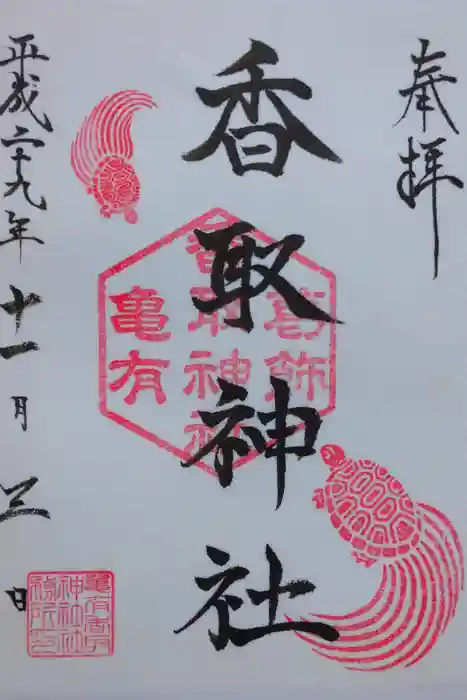 奉拝
香取神社
葛飾
香取神社
亀有
平成二十九年十一月三日
亀有香取
神社社
務所印